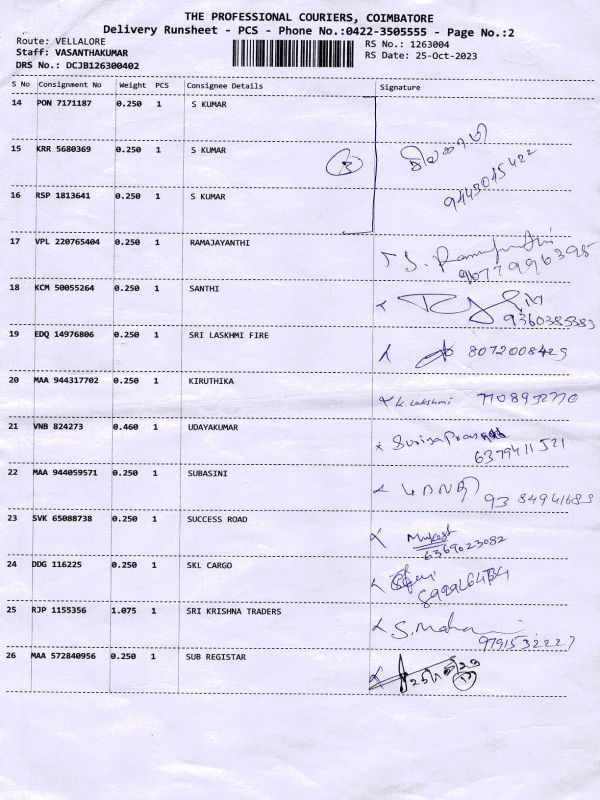 THE PROFESSIONAL COURIERS, COIMBATORE
Delivery Runsheet - PCS - Phone No.:0422-3505555 - Page No.:2
Route: VELLALORE
Staff: VASANTHAKUMAR
DRS No.: DCJB126300402
RS No.: 1263004
RS Date: 25-Oct-2023
S No Consignment No Weight PCS Consignee Details Signature
14 PON 7171187 0.250 1 S KUMAR
15 KRR 5680369 0.250 1 S KUMAR 3
9443015422
16 RSP 1813641 0.250 1 S KUMAR
17 VPL 220765404 0.250 1 RAMAJAYANTHI
9677996395
18 KCM 50055264 0.250 1 SANTHI
9360385383
19 EDQ 14976806 0.250 1 SRI LASKHMI FIRE 8072008425
20 MAA 944317702 0.250 1 KIRUTHIKA K. Lakshmi 7708952770
21 VNB 824273 0.460 1 UDAYAKUMAR
6379411521
22 MAA 944059571 0.250 1 SUBASINI 9384941683
23 SVK 65088738 0.250 1 SUCCESS ROAD Mukesh
6369023082
24 DDG 116225 0.250 1 SKL CARGO
25 RJP 1155356 1.075 1 SRI KRISHNA TRADERS S. Maha
9791532227
26 MAA 572840956 0.250 1 SUB REGISTAR